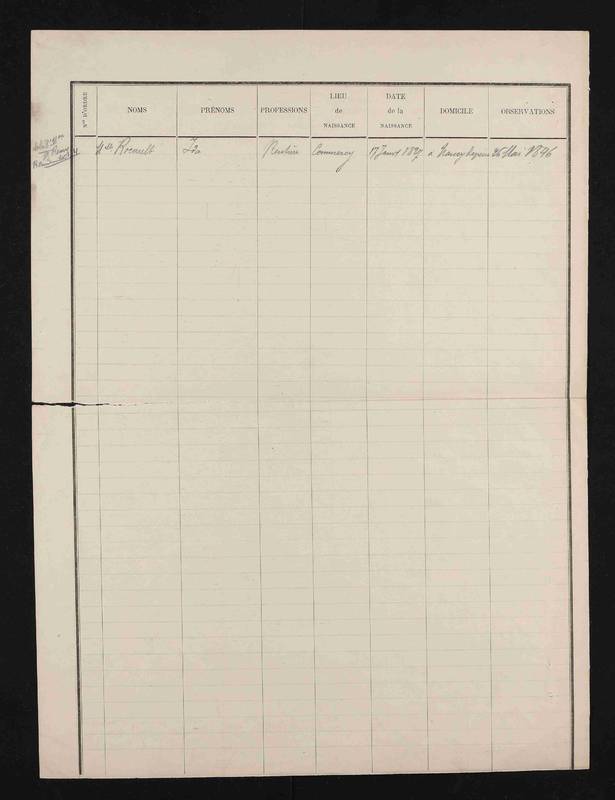 Nos D'ORDRE NOMS PRÉNOMS PROFESSIONS LIEU de NAISSANCE DATE de la NAISSANCE DOMICILE OBSERVATIONS
Ida Rentière Commercy 17 Janvr à Nancy depuis 26 Mai 1896